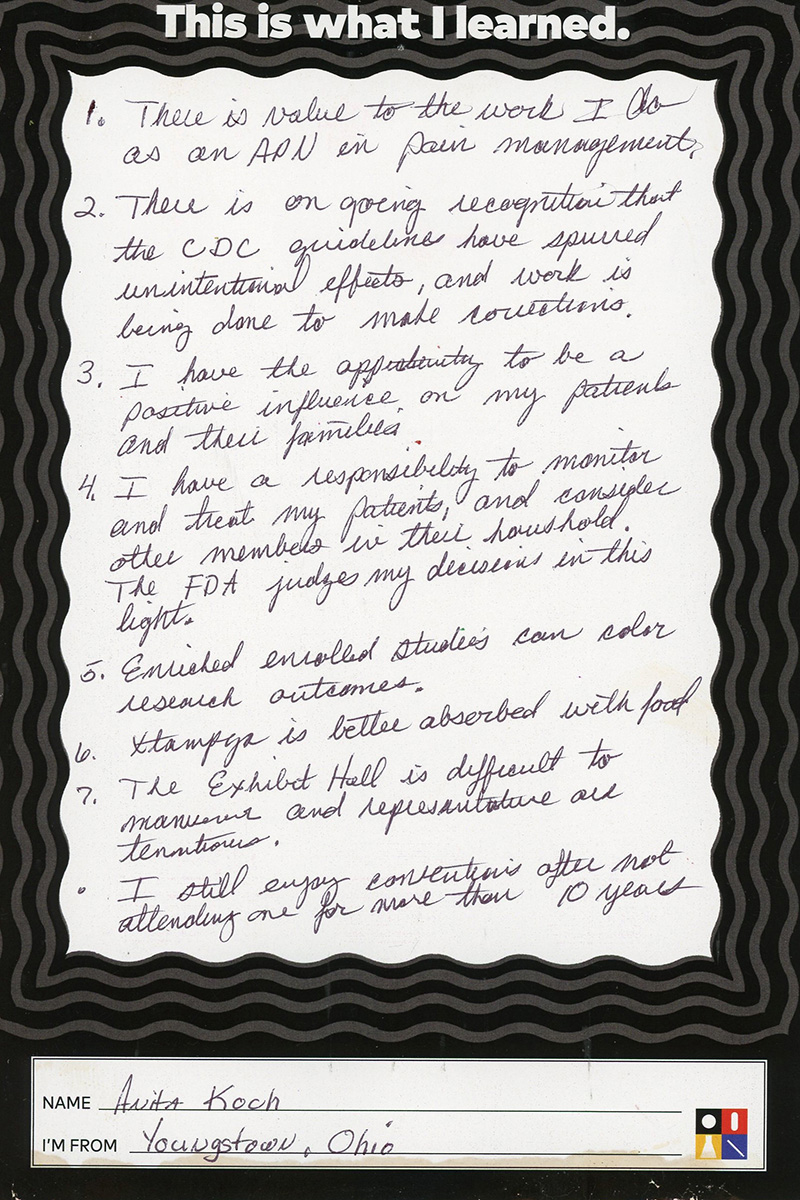 This is what I learned.
1. There is value to the work I do
as an APN in pain management.
2. There is on going recognition that
the CDC guidelines have spurred
unintentional effects, and work is
being done to make corrections.
3. I have the opportunity to be a
positive influence on my patients
and their families.
4. I have a responsibility to monitor
and treat my patients, and consider
other members in their houshold.
The FDA judges my decisions in this
light.
5. Enriched enrolled studies can color
research outcomes.
6. Xtampza is better absorbed with food
7. The Exhibit Hall is difficult to
manuever and representative are
tenatious.
• I still enjoy conventions after not
attending one for more than 10 years
NAME Anita Koch
I'M FROM Youngstown, Ohio